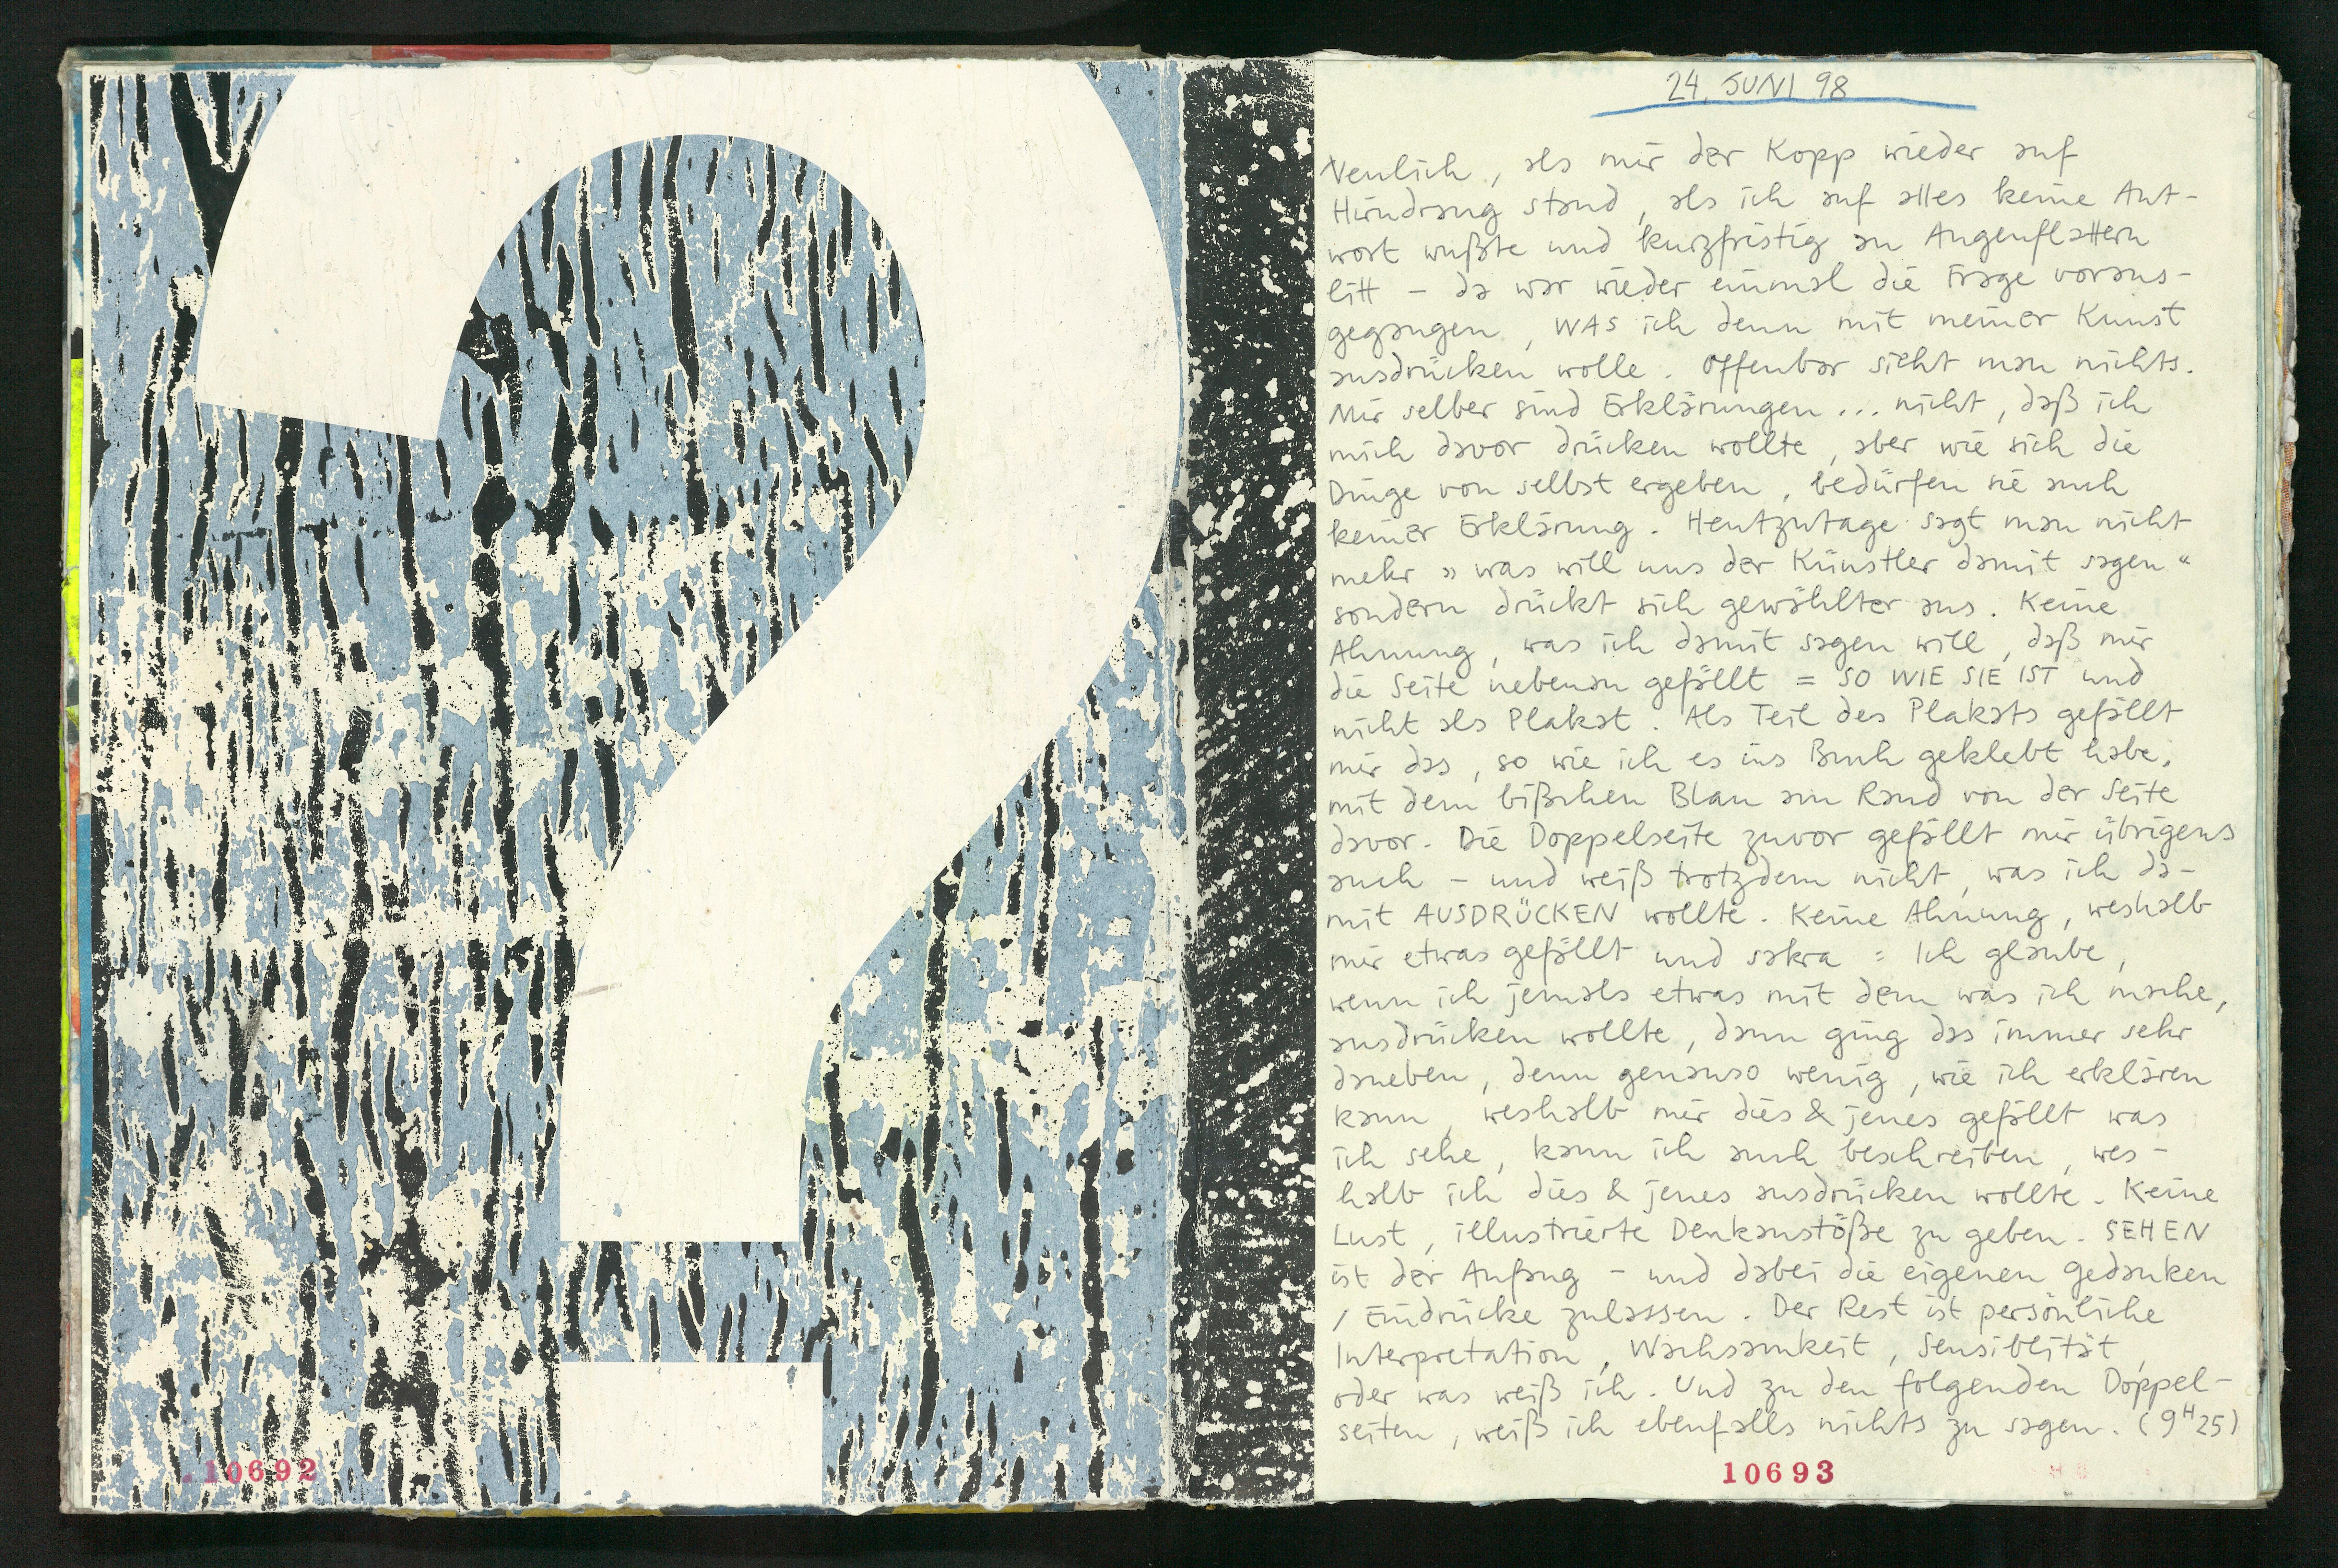 ?
10692
24. JUNI 98
Neulich, als mir der Kopp wieder auf
Hirndrang stand, als ich auf alles keine Ant-
wort wußte und kurzfristig an Augenflattern
litt – da war wieder einmal die Frage voraus-
gegangen, WAS ich denn mit meiner Kunst
ausdrücken wolle. Offenbar sieht man nichts.
Mir selber sind Erklärungen... nicht, daß ich
mich davor drücken wollte, aber wie sich die
Dinge von selbst ergeben, bedürfen sie auch
keiner Erklärung. Heutzutage sagt man nicht
mehr »was will uns der Künstler damit sagen«
sondern drückt sich gewählter aus. Keine
Ahnung, was ich damit sagen will, daß mir
die Seite nebenan gefällt = SO WIE SIE IST und
nicht als Plakat. Als Teil des Plakats gefällt
mir das, so wie ich es ins Buch geklebt habe,
mit dem bißchen Blau am Rand von der Seite
davor. Die Doppelseite zuvor gefällt mir übrigens
auch – und weiß trotzdem nicht, was ich da-
mit AUSDRÜCKEN wollte. Keine Ahnung, weshalb
mir etwas gefällt und sakra: Ich glaube,
wenn ich jemals etwas mit dem was ich mache,
ausdrücken wollte, dann ging das immer sehr
daneben, denn genauso wenig, wie ich erklären
kann, weshalb mir dies & jenes gefällt was
ich sehe, kann ich auch beschreiben, wes-
halb ich dies & jenes ausdrücken wollte. Keine
Lust, illustrierte Denkanstöße zu geben. SEHEN
ist der Anfang – und dabei die eigenen Gedanken
/ Eindrücke zulassen. Der Rest ist persönliche
Interpretation, Wachsamkeit, Sensiblität,
oder was weiß ich. Und zu den folgenden Doppel-
seiten, weiß ich ebenfalls nichts zu sagen. (9H25)
10693